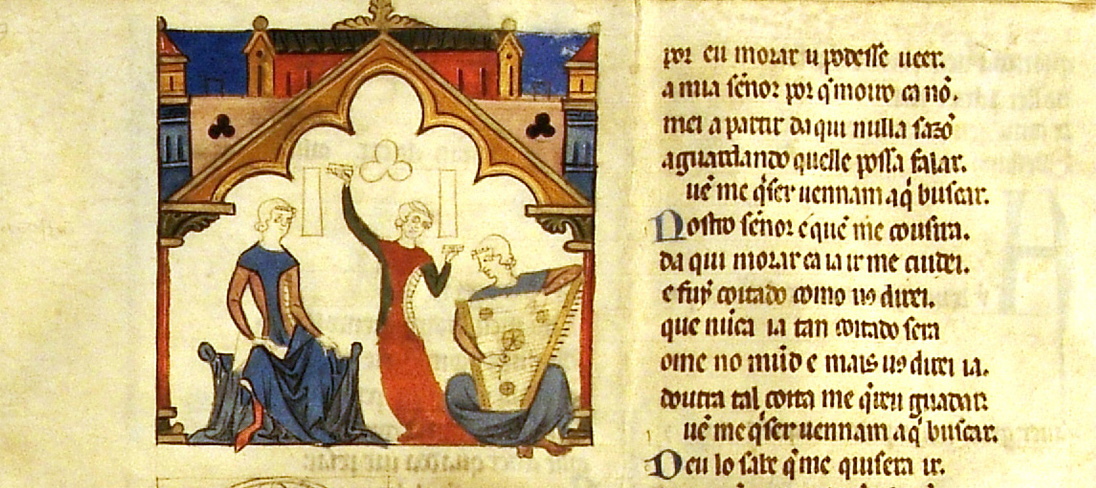 por eu morar u podesse ueer.
a mia señor por q̃ mouro ca nõ.
mei a partir da qui nulla sazõ
aguardando quelle possa falar.
uẽ me q̃ser uennam aq̃ buscar.
Nostro señor e quẽ me cousira.
da qui morar ca ia ir me cuidei.
e fuy coitado como u9 direi.
que nũca ia tan coitado sera
ome no mũd e mais u9 direi ia.
doutra tal coita me q̃reu guardar.
uẽ me q̃ser uennam aq̃ buscar.
Deu lo sabe q̃ me quisera ir.